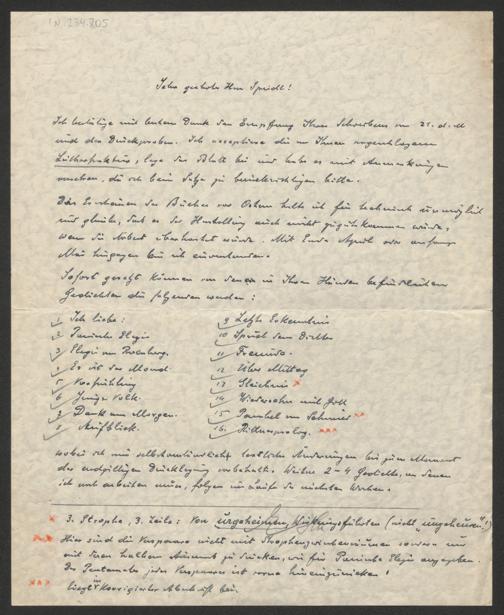 IN.234.805
Sehr geehrter Herr Speidl!
Ich bestätige mit bestem Dank den Empfang Ihres Schreibens vom 25. d. M
und der Druckproben. Ich acceptiere die von Ihnen vorgeschlagene
, lege das Blatt bei und habe es mit Anmerkungen
versehen, die ich beim Satze zu berücksichtigen bitte.
Das Erscheinen des Buches vor Ostern halte ich für technisch unmöglich
und glaube, daß es der Herstellung auch nicht zugute kommen würde,
wenn die Arbeit überhastet würde. Mit Ende April oder anfangs
Mai hingegen bin ich einverstanden.
Sofort gesetzt können von denen in Ihren Händen befindlichen
Gedichten die folgenden werden:
1 Ich liebe:
2 Panische Elegie
3 Elegie am Rosenberg.
4 Es ist der Mond.
5 Vorfrühling
6 Junges Volk.
7 Dank am Morgen.
8 Aufblick.
9 Letzte Erkenntnis
10 Spruch dem Dichter
11 Freunde.
12 Über Mittag
13 Gleichnis x
14 Wiedersehn mit Gott
15 Parabel vom Schmied xx
16. xxx
wobei ich mir selbstverständlich textliche Änderungen bis zum Moment
der endgiltigen Drucklegung vorbehalte. Weitere 2-4 Gedichte, an denen
ich noch arbeiten muss, folgen im Laufe der nächsten Wochen.
x 3. Strophe, 3. Zeile: Von ungeheuren (nicht "ungeheuern"!)
xx Hier sind die Verspaare nicht mit Strophenzwischenräumen sondern nur
mit einem halben zu rücken, wie für Panische Elegie angegeben.
Der Pentameter jedes Verspaares ist vorne hineinzurücken!
xxx liegt korrigierte Abschrift bei.